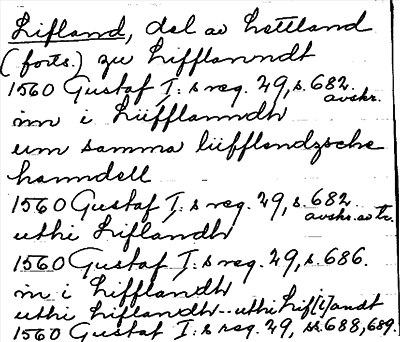 Lifland, del av Lettland
(forts.) zu Liffianndt
1560 Gustaf I:s reg. 29, s. 682
avskr.
inn i Lüfflanndh
um samma lüfflendzsche
hanndell
1560 Gustaf I:s reg. 29, s. 682
avskr. av tr.
uthi Liflandh
1560 Gustaf I:s reg. 29, s. 686.
in i Lifflandh
uthi Liflandh - uthi Lif[l]andt
1560 Gustaf I:s reg. 29, ss. 688, 689.